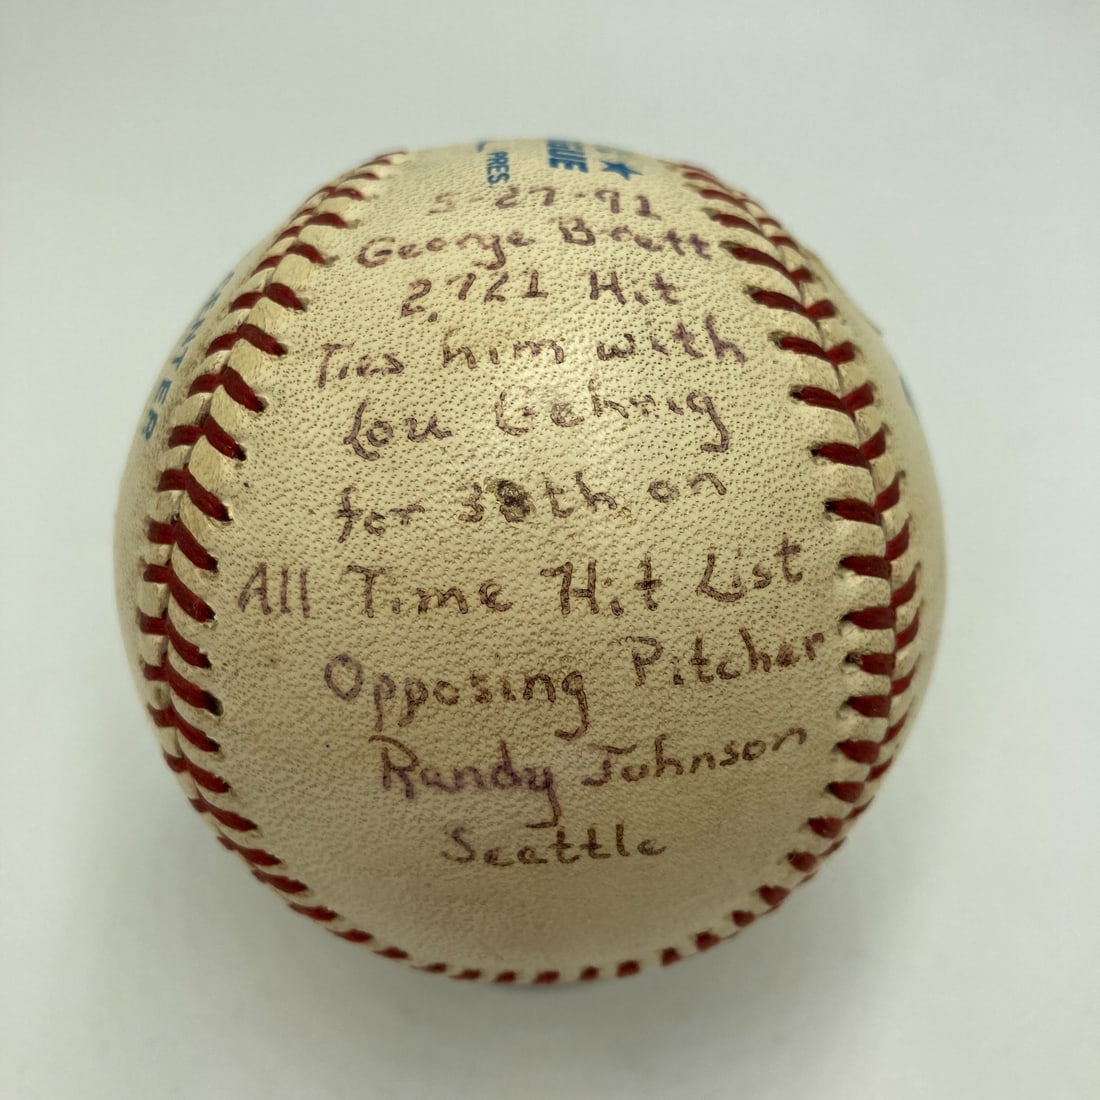 ★
GUE
PRES.
ENTER
5-27-91
George Brett
2,721 Hit
Ties him with
Lou Gehrig
for 38th on
All Time Hit List
Opposing Pitcher
Randy Johnson
Seattle